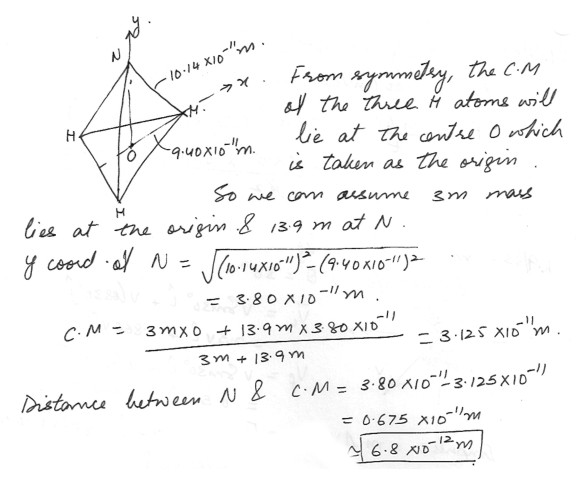 y
N
10.14 x10⁻¹¹m.
→ x.
H.
H
9.40x10⁻¹¹m.
O
H
From symmetry, the C.M
of the three H atoms will
lie at the centre O which
is taken as the origin.
So we can assume 3m mass
lies at the origin & 13.9 m at N.
y coord. of N = √(10.14x10⁻¹¹)² - (9.40x10⁻¹¹)²
= 3.80 x 10⁻¹¹ m.
C.M = 3mx0 + 13.9m x 3.80 x10⁻¹¹ / 3m + 13.9m = 3.125 x10⁻¹¹m.
Distance between N & C.M = 3.80 x10⁻¹¹ - 3.125x10⁻¹¹
= 0.675 x10⁻¹¹m
≃ 6.8 x10⁻¹² m